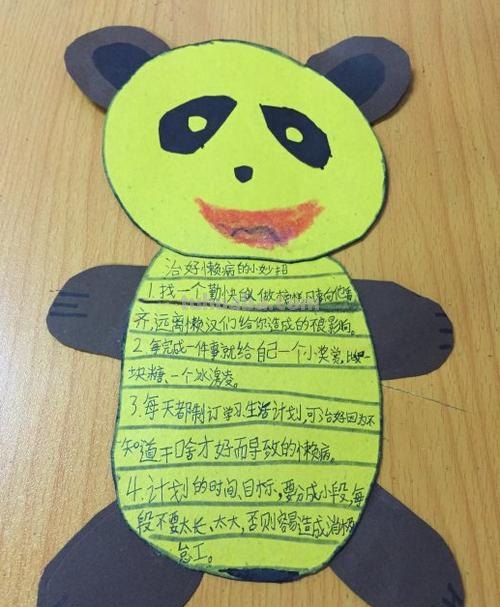 治好懒病的小妙招
1.找一个勤快的人做榜样,凡事向他看
齐,远离懒汉们给你造成的不良影响。
2.每完成一件事就给自己一个小奖赏,比如一
块糖、一个冰激凌。
3.每天都制订学习生活计划,可治好因为不
知道干啥才好而导致的懒病。
4.计划的时间、目标,要分成小段,每
段不要太长、太大,否则容易造成消极
怠工。